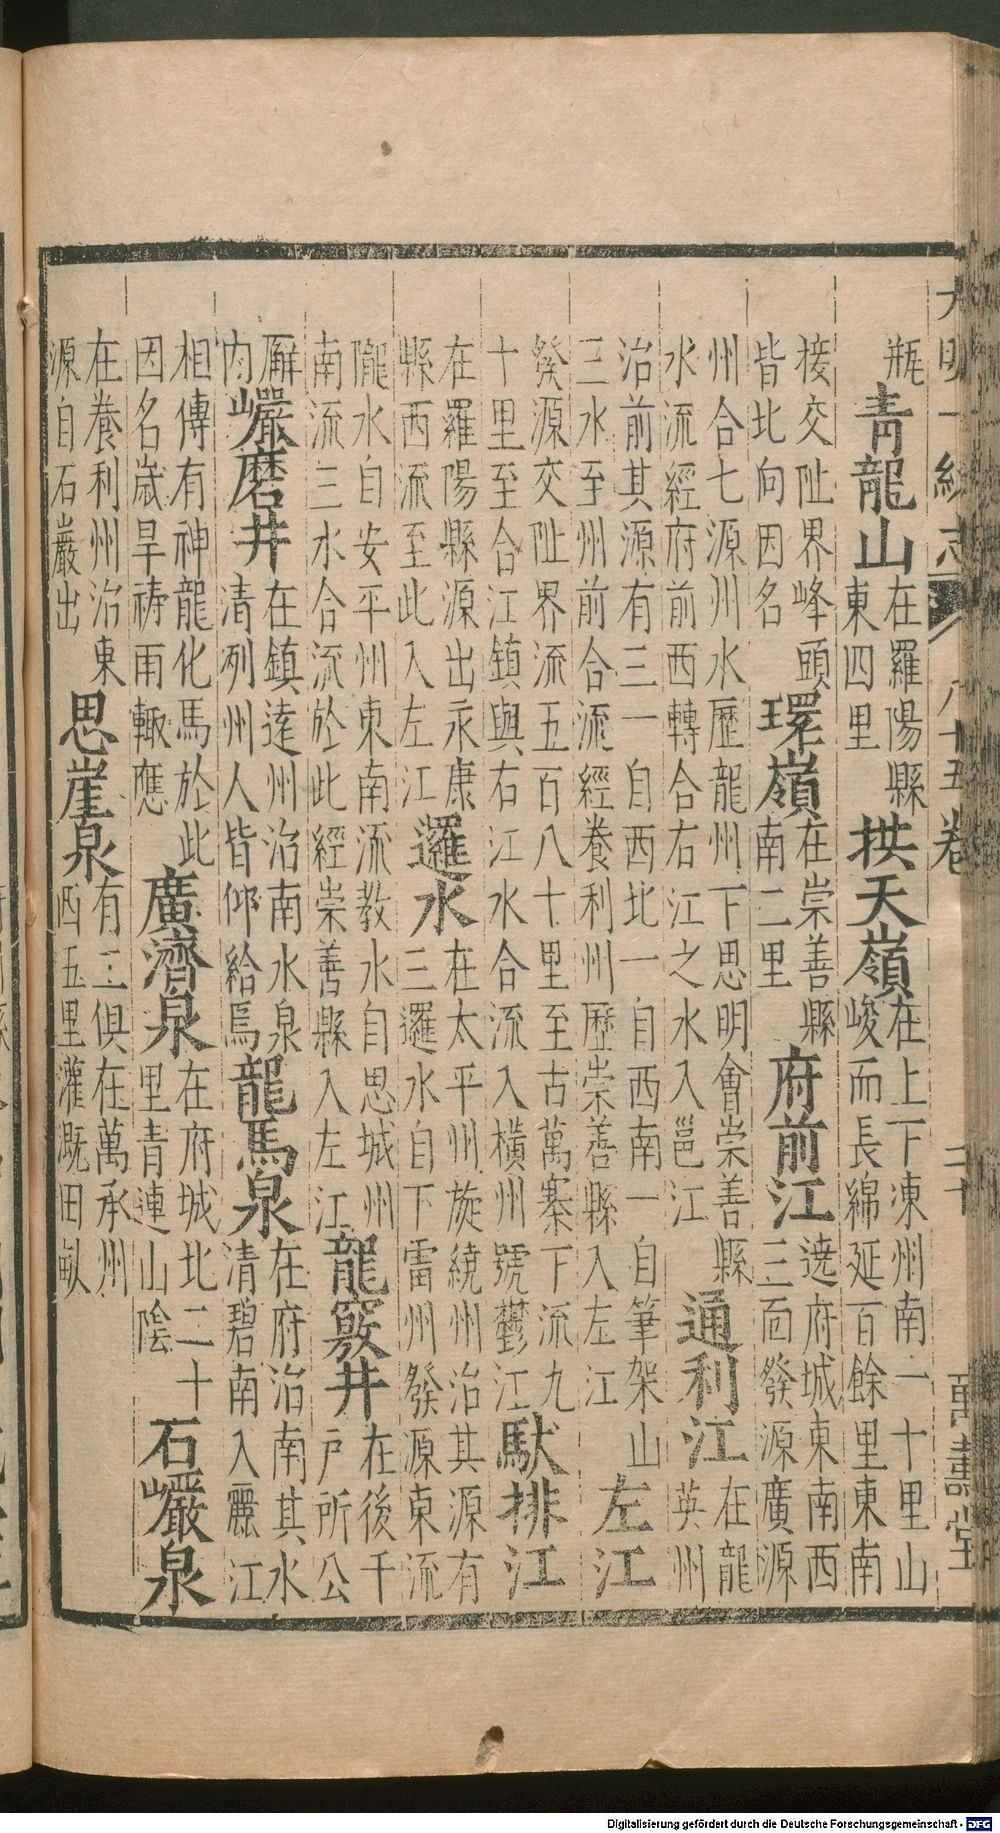 大明一統志 八十五卷 二十 萬壽堂
瓶
青龍山
在羅陽縣
東四里
拱天嶺
在上下凍州南一十里山
峻而長綿延百餘里東南
接交阯界峰頭
皆北向因名
環嶺
在崇善縣
南二里
府前江
遶府城東南西
三面發源廣源
州合七源州水歷龍州下思明會崇善縣
水流經府前西轉合右江之水入邕江
通利江
在龍
英州
治前其源有三一自西北一自西南一自筆架山
三水至州前合流經養利州歷崇善縣入左江
左江
發源交阯界流五百八十里至古萬寨下流九
十里至合江鎮與右江水合流入橫州號鬱江
馱排江
在羅陽縣源出永康
縣西流至此入左江
邏水
在太平州旋繞州治其源有
三邏水自下雷州發源東流
隴水自安平州東南流教水自思城州
南流三水合流於此經崇善縣入左江
龍竅井
在後千
戶所公
廨
内
巖磨井
在鎮遠州治南水泉
清冽州人皆仰給焉
龍馬泉
在府治南其水
清碧南入麗江
相傳有神龍化馬於此
因名歲旱禱雨輙應
廣濟泉
在府城北二十
里青連山陰
石巖泉
在養利州治東
源自石巖出
思崖泉
有二俱在萬承州
西五里灌溉田畝
Digitalisierung gefördert durch die Deutsche Forschungsgemeinschaft - DFG